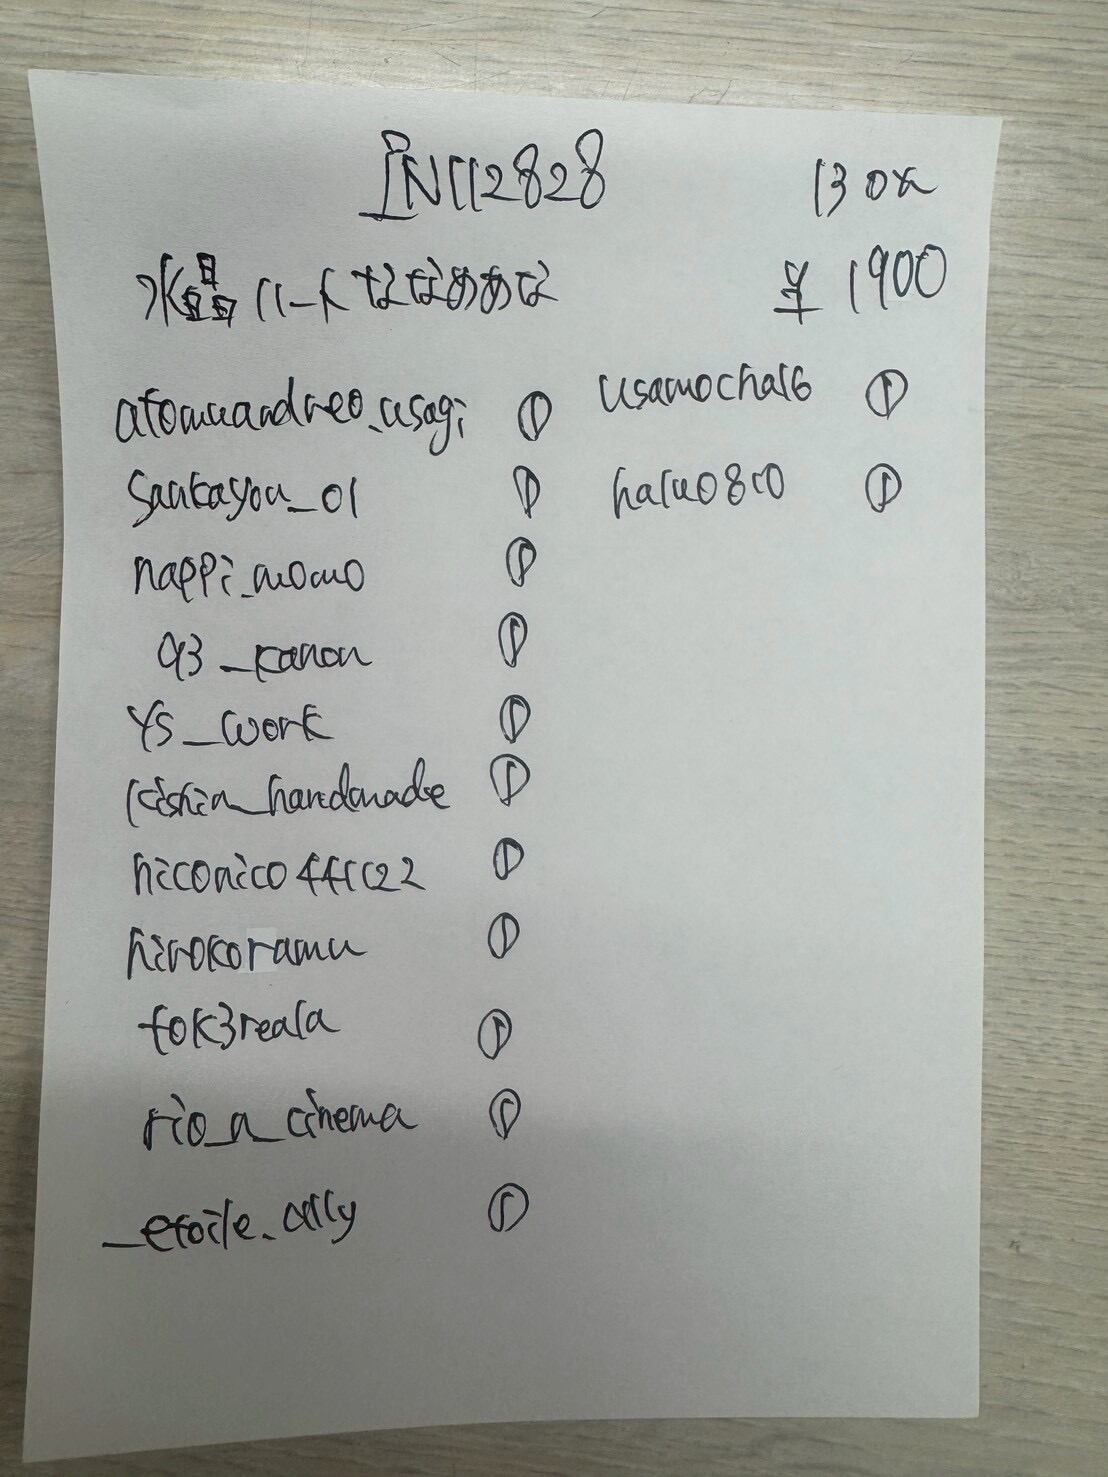 INC12828
130pcs
水晶ハートななめあな
¥1900
atomuandneo_usagi ①
sankayou_01 ①
nappi_momo ①
93_kanon ①
YS_work ①
kishin_handmade ①
niconico441122 ①
hirokoramu ①
tok3reala ①
rio_n_cinema ①
_etoile._ally ①
usamocha16 ①
haluo810 ①